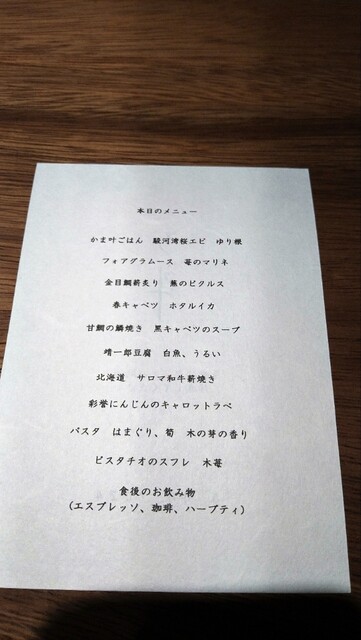 本日のメニュー
かま叶ごはん 駿河湾桜エビ ゆり根
フォアグラムース 苺のマリネ
金目鯛薪炙り 蕪のピクルス
春キャベツ ホタルイカ
甘鯛の鱗焼き 黒キャベツのスープ
晴一郎豆腐 白魚、うるい
北海道 サロマ和牛薪焼き
彩誉にんじんのキャロットラペ
パスタ はまぐり、筍 木の芽の香り
ピスタチオのスフレ 木苺
食後のお飲み物
(エスプレッソ、珈琲、ハーブティ)